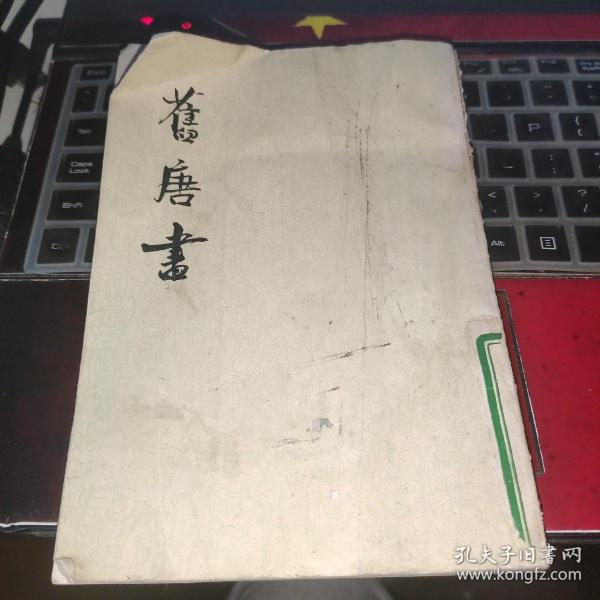 舊唐書
Esc
Tab
Caps
Lock
Shift
Alt
P
孔夫子旧書网
www.kongfz.com